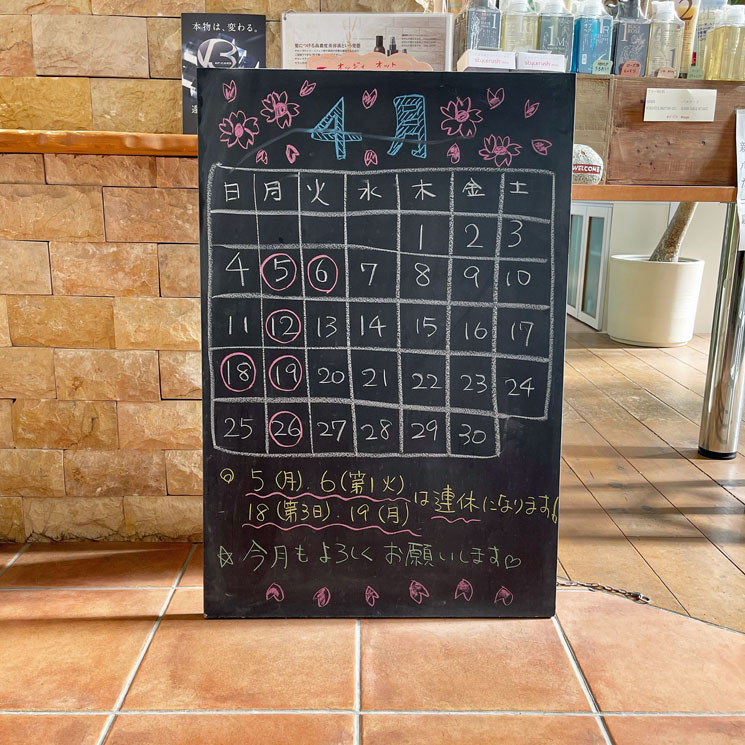 本物は、変わる。
髪につける高濃度美容液という発想
4月
日 月 火 水 木 金 土
1 2 3
4 5 6 7 8 9 10
11 12 13 14 15 16 17
18 19 20 21 22 23 24
25 26 27 28 29 30
WELCOME
5(月).6(第1火)
18(第3日).19(月) は連休になります!
☆今月もよろしくお願いします♡